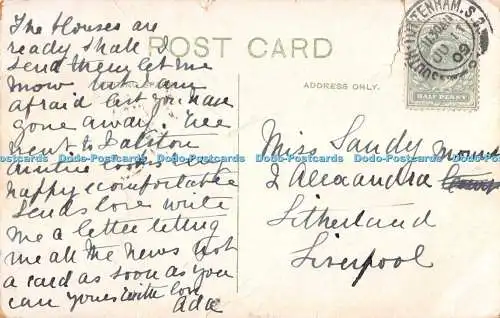 The blouses are
ready shall I
send them let me
know
afraid but you have
gone away. We
went to Dalston
Auntie looks
happy & comfortable
sends love write
me a letter telling
me all the news not
a card as soon as you
can yours with love
Ada
POST CARD
ADDRESS ONLY.
HALF PENNY
SOUTH TOTTENHAM. S.O.
09
Miss Sandy
2 Alexandra Mount
Litherland
Liverpool
Dodo-Postcards Dodo-Postcards Dodo-Postcards Dodo-Postcards Dodo-Postcards